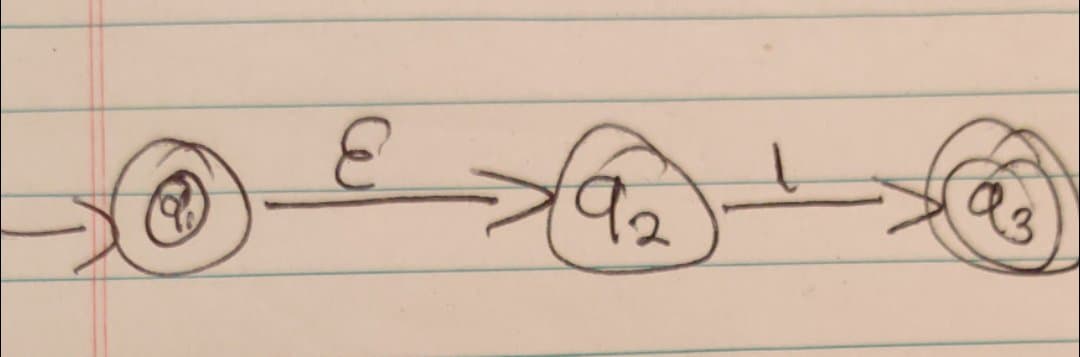 q₁ ε q₂ 1 q₃